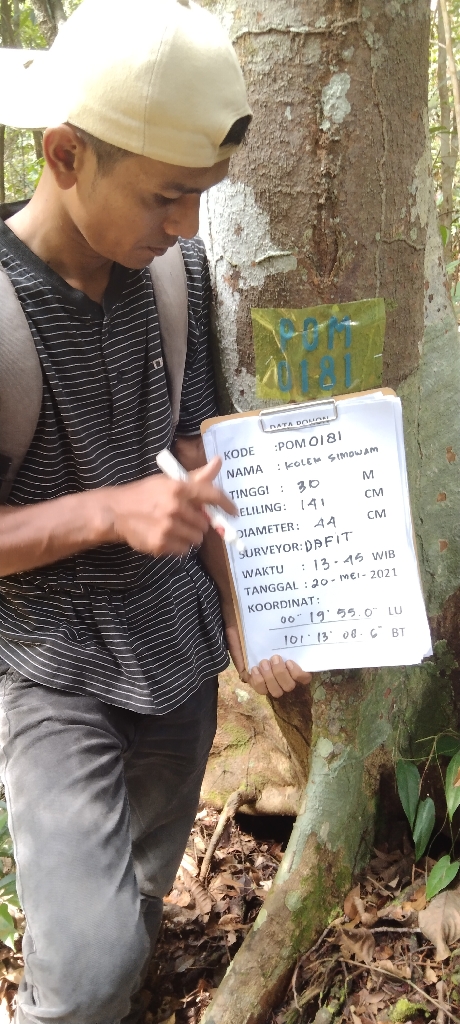 POM
0181
DATA POHON
KODE :POM0181
NAMA : KOLEK SIMOWAM
TINGGI : 30 M
KELILING: 141 CM
DIAMETER: 44 CM
SURVEYOR:DAFIT
WAKTU : 13-45 WIB
TANGGAL :20-MEI-2021
KOORDINAT:
00° 19' 55.0" LU
101° 13' 08-6" BT